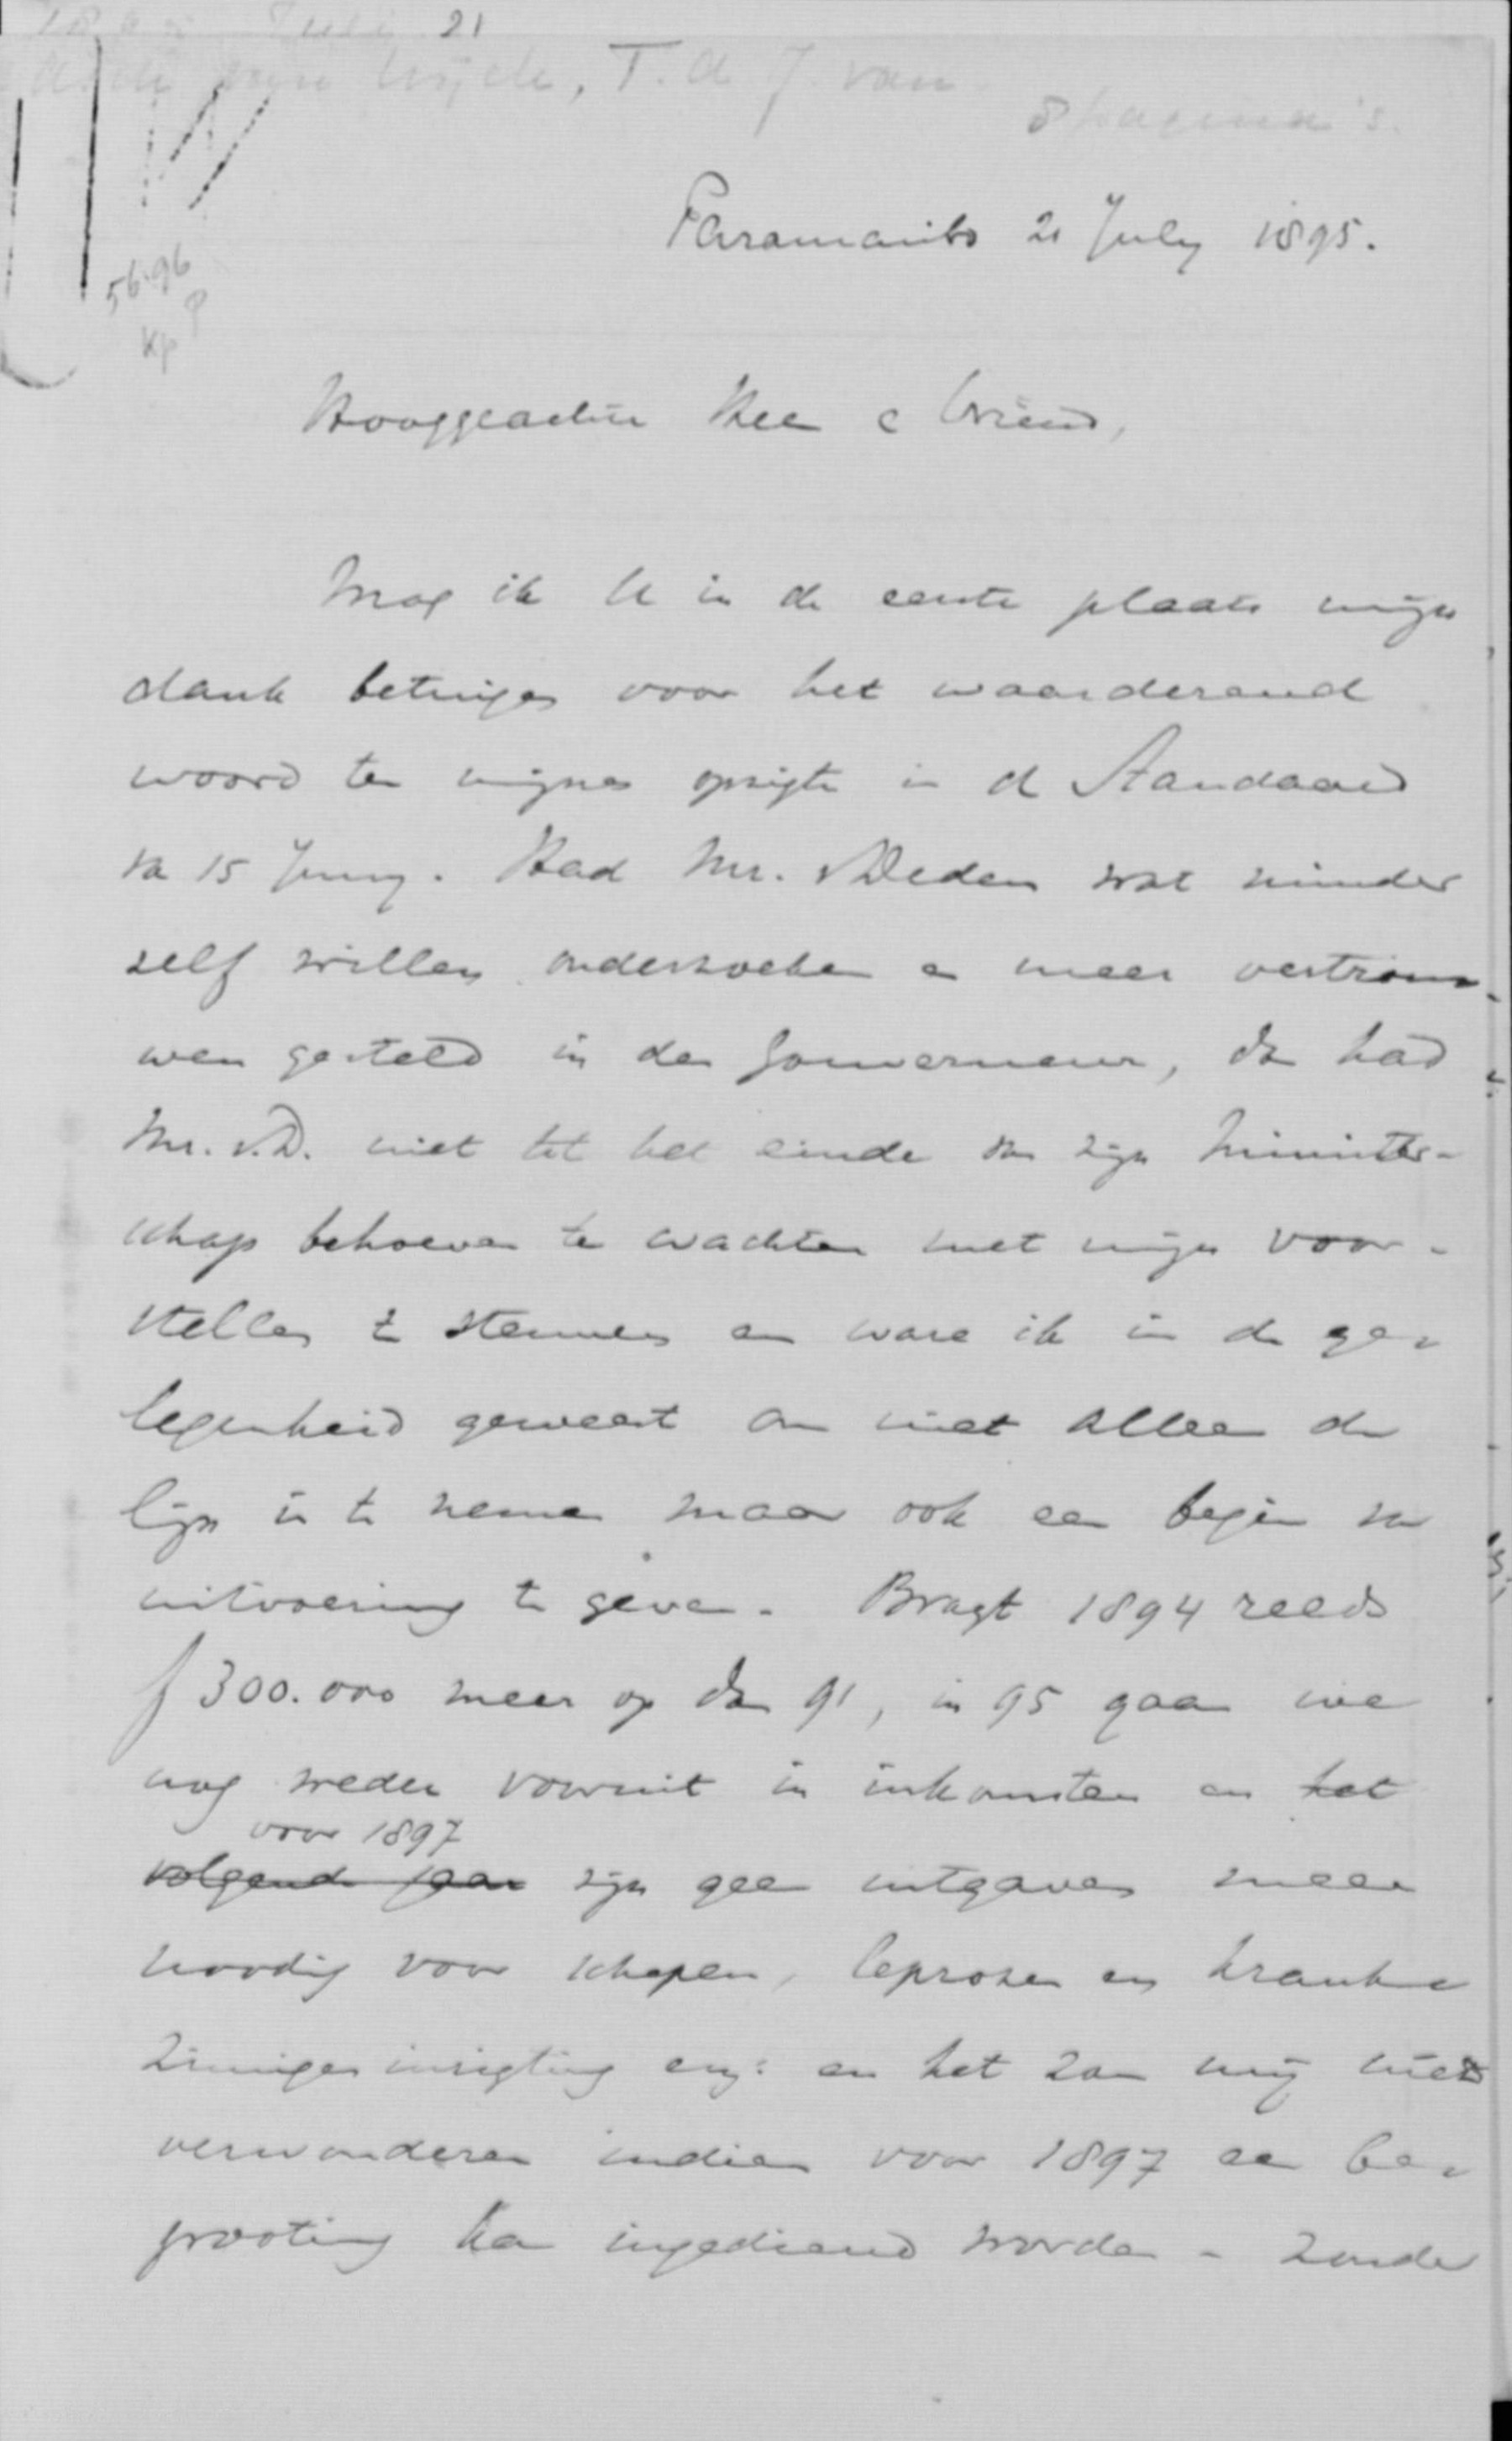 Juli 21
van Wijck, T. A. J. van
8 pagina's.
56.96
Kp
Paramaribo 21 July 1895.
Hooggeachte Heer & Vriend,
Mag ik U in de eerste plaats mijn
dank betuigen voor het waarderend
woord ten mijnen opzigte in de Standaard
van 15 Juny. Had Mr. v Deden wat minder
zelf willen onderzoeken en meer vertrou-
wen gesteld in den Gouverneur, dan had
Mr. v. D. niet tot het einde van zijn Minister-
schap behoeven te wachten met mijn voor-
stellen te steunen en ware ik in de ge-
legenheid geweest om niet alleen de
lijn in te nemen maar ook een begin van
uitvoering te geven. Bragt 1894 reeds
f 300.000 meer op dan 91, in 95 gaan we
nog weder vooruit in inkomsten en het
voor 1897
volgende jaar zijn geen uitgaven meer
noodig voor schepen, leprozen en krank-
zinnigen inrigting enz: en het zou mij niets
verwonderen indien voor 1897 een be-
grooting kan ingediend worden - zonder